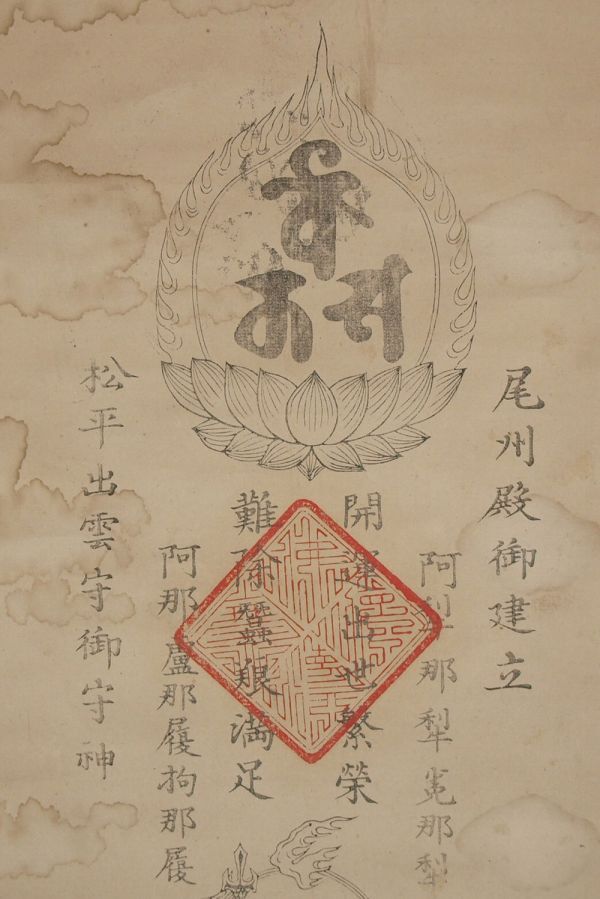 尾州殿御建立
阿犁那犁㝹那犁
開運出世繁榮
難除蠶満足
阿那盧那履拘那履
松平出雲守御守神